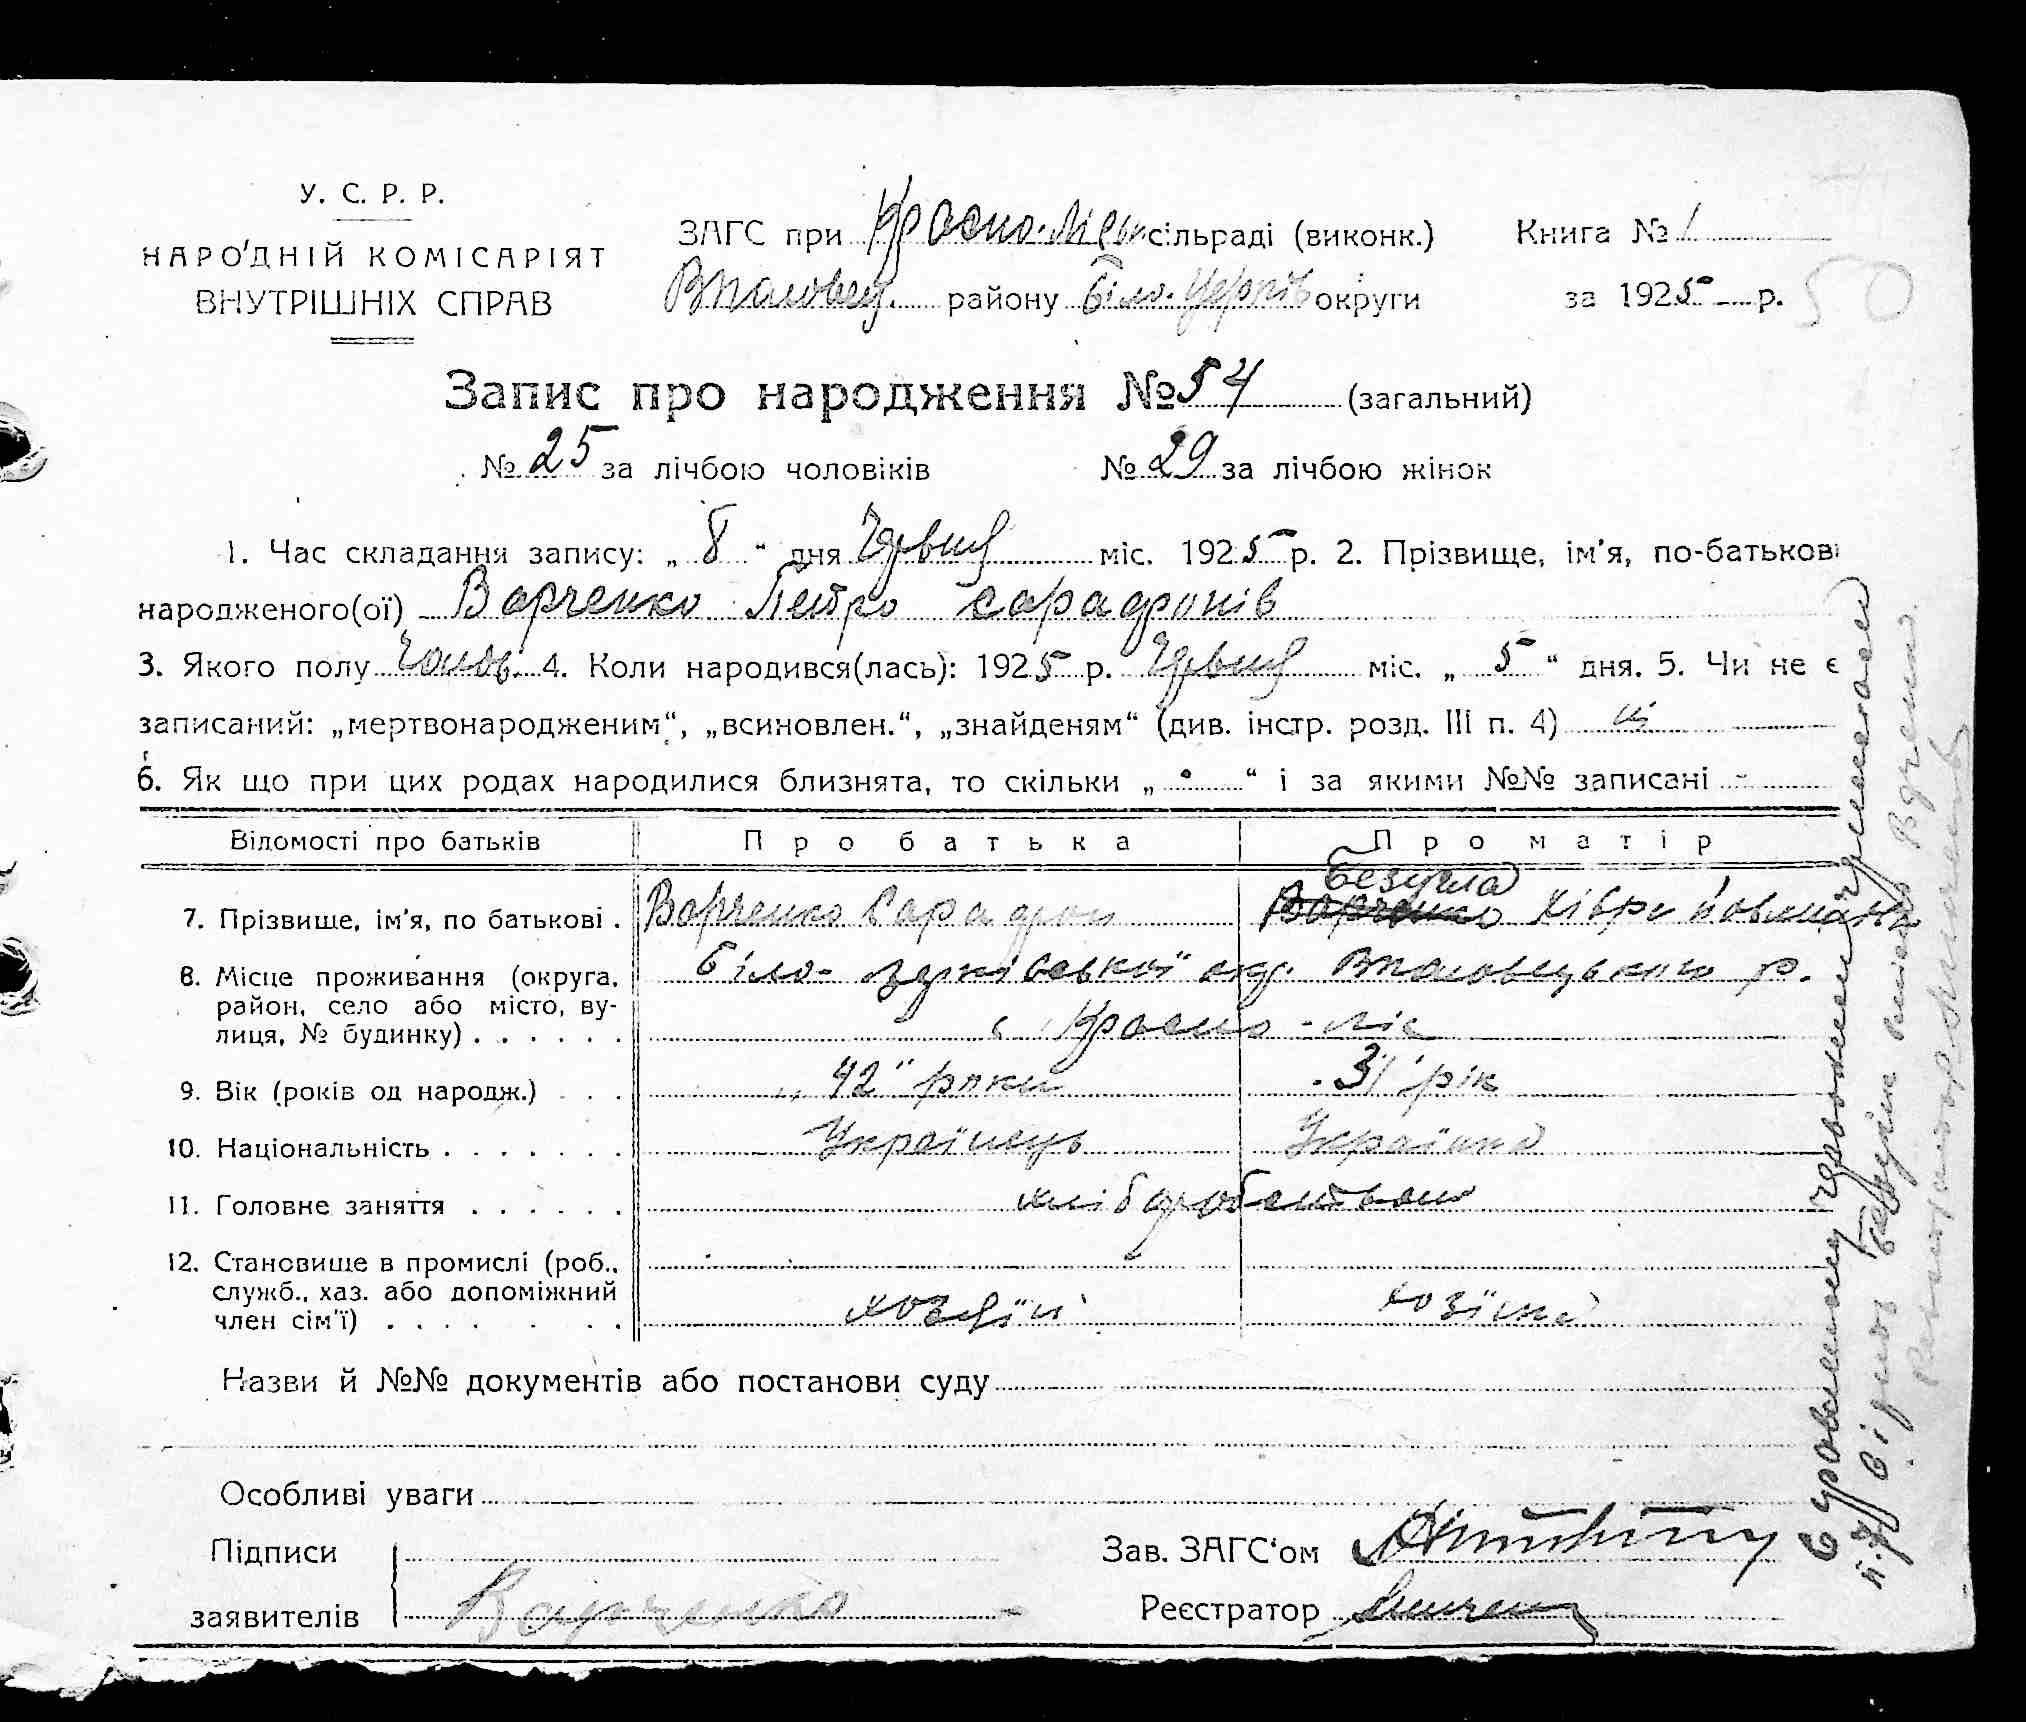 У. С. Р. Р.
НАРО'ДНІЙ КОМІСАРІЯТ
ВНУТРІШНІХ СПРАВ
ЗАГС при Красно-Лісь. сільраді (виконк.) Книга № 1
району Біло-Церків округи за 1925 р.
50
Запис про народження № 54 (загальний)
№ 25 за лічбою чоловіків № 29 за лічбою жінок
1. Час складання запису: „ 8 “ дня Червця міс. 1925 р. 2. Прізвище, ім'я, по-батькові
народженого(ої) Варченко Петро Сарафонів
3. Якого полу Чолов. 4. Коли народився(лась): 1925 р. Червця міс. „ 5 “ дня. 5. Чи не є
записаний: „мертвонародженим“, „всиновлен.“, „знайденям“ (див. інстр. розд. III п. 4) ні
6. Як що при цих родах народилися близнята, то скільки „ “ і за якими №№ записані -
Відомості про батьків Про батька Про матір
Безугла
7. Прізвище, ім'я, по батькові . Варченко Сарафон Варченко Хівря
8. Місце проживання (округа, район, село або місто, вулиця, № будинку) . . . . . . Біло-церківської окр. р.
с. Красно-ліс
9. Вік (років од народж.) . . . „42" роки 31 рік
10. Національність . . . . . . . Українець Українка
11. Головне заняття . . . . . . хлібороб
12. Становище в промислі (роб., служб., хаз. або допоміжний член сім'ї) . . . . . . . хозяїн хозїка
Назви й №№ документів або постанови суду
Особливі уваги
Підписи Зав. ЗАГС'ом
заявителів Варченко Реєстратор